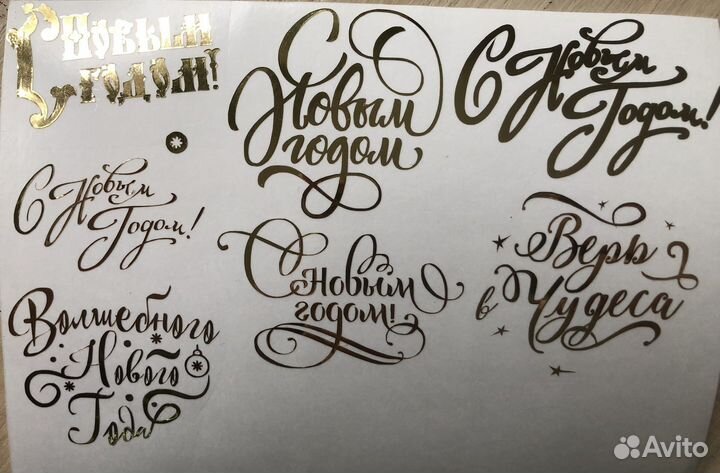 С Новым
годом!
С
Новым
годом
С Новым
Годом!
С Новым
Годом!
С Новым
годом!
Верь
в Чудеса
Волшебного
Нового
Года
Avito